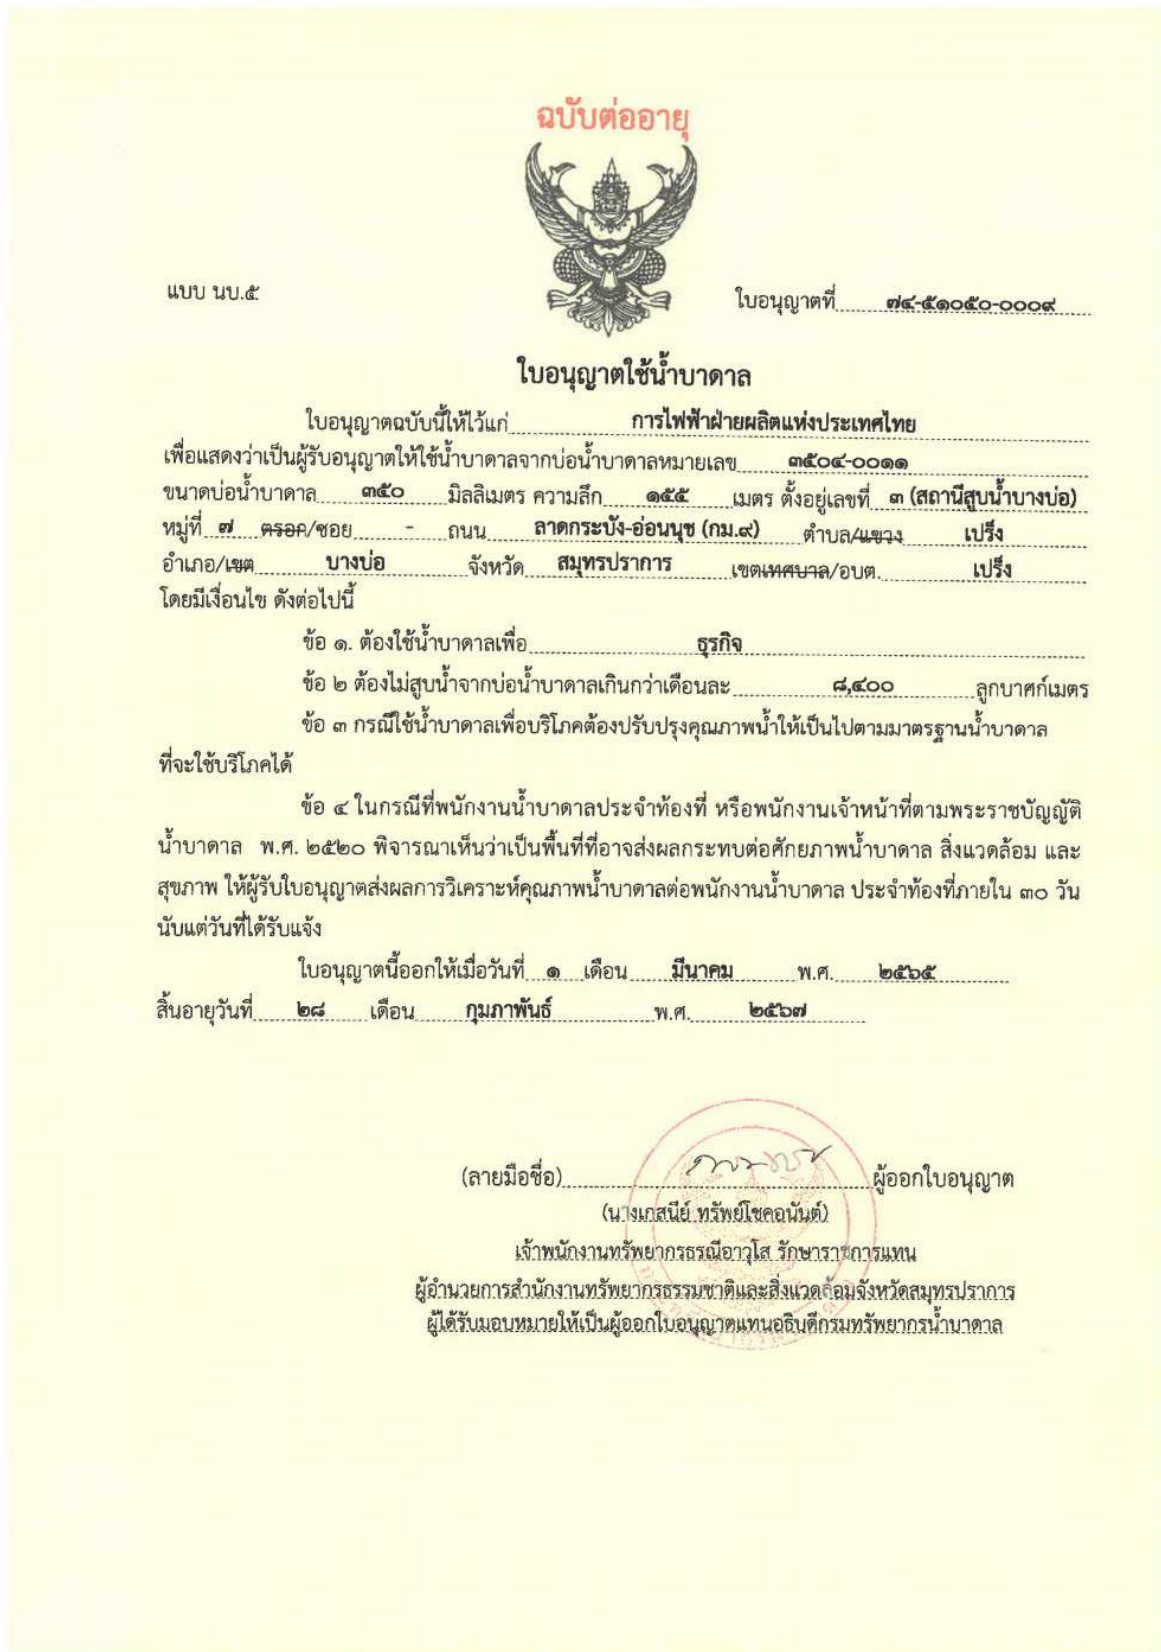 ฉบับต่ออายุ
แบบ นบ.๕
ใบอนุญาตที่ ๗๔-๕๑๐๕๐-๐๐๐๙
ใบอนุญาตใช้น้ำบาดาล
ใบอนุญาตฉบับนี้ให้ไว้แก่ การไฟฟ้าฝ่ายผลิตแห่งประเทศไทย
เพื่อแสดงว่าเป็นผู้รับอนุญาตให้ใช้น้ำบาดาลจากบ่อน้ำบาดาลหมายเลข ๓๕๐๔-๐๐๑๑
ขนาดบ่อน้ำบาดาล ๓๕๐ มิลลิเมตร ความลึก ๑๕๕ เมตร ตั้งอยู่เลขที่ ๓ (สถานีสูบน้ำบางบ่อ)
หมู่ที่ ๗ ตรอก/ซอย - ถนน ลาดกระบัง-อ่อนนุช (กม.๙) ตำบล/แขวง เปร็ง
อำเภอ/เขต บางบ่อ จังหวัด สมุทรปราการ เขตเทศบาล/อบต. เปร็ง
โดยมีเงื่อนไข ดังต่อไปนี้
ข้อ ๑. ต้องใช้น้ำบาดาลเพื่อ ธุรกิจ
ข้อ ๒ ต้องไม่สูบน้ำจากบ่อน้ำบาดาลเกินกว่าเดือนละ ๘,๔๐๐ ลูกบาศก์เมตร
ข้อ ๓ กรณีใช้น้ำบาดาลเพื่อบริโภคต้องปรับปรุงคุณภาพน้ำให้เป็นไปตามมาตรฐานน้ำบาดาล
ที่จะใช้บริโภคได้
ข้อ ๔ ในกรณีที่พนักงานน้ำบาดาลประจำท้องที่ หรือพนักงานเจ้าหน้าที่ตามพระราชบัญญัติ
น้ำบาดาล พ.ศ. ๒๕๒๐ พิจารณาเห็นว่าเป็นพื้นที่ที่อาจส่งผลกระทบต่อศักยภาพน้ำบาดาล สิ่งแวดล้อม และ
สุขภาพ ให้ผู้รับใบอนุญาตส่งผลการวิเคราะห์คุณภาพน้ำบาดาลต่อพนักงานน้ำบาดาล ประจำท้องที่ภายใน ๓๐ วัน
นับแต่วันที่ได้รับแจ้ง
ใบอนุญาตนี้ออกให้เมื่อวันที่ ๑ เดือน มีนาคม พ.ศ. ๒๕๖๕
สิ้นอายุวันที่ ๒๘ เดือน กุมภาพันธ์ พ.ศ. ๒๕๖๗
(ลายมือชื่อ) ผู้ออกใบอนุญาต
(นางเกสนีย์ ทรัพย์โชคอนันต์)
เจ้าพนักงานทรัพยากรธรณีอาวุโส รักษาราชการแทน
ผู้อำนวยการสำนักงานทรัพยากรธรรมชาติและสิ่งแวดล้อมจังหวัดสมุทรปราการ
ผู้ได้รับมอบหมายให้เป็นผู้ออกใบอนุญาตแทนอธิบดีกรมทรัพยากรน้ำบาดาล